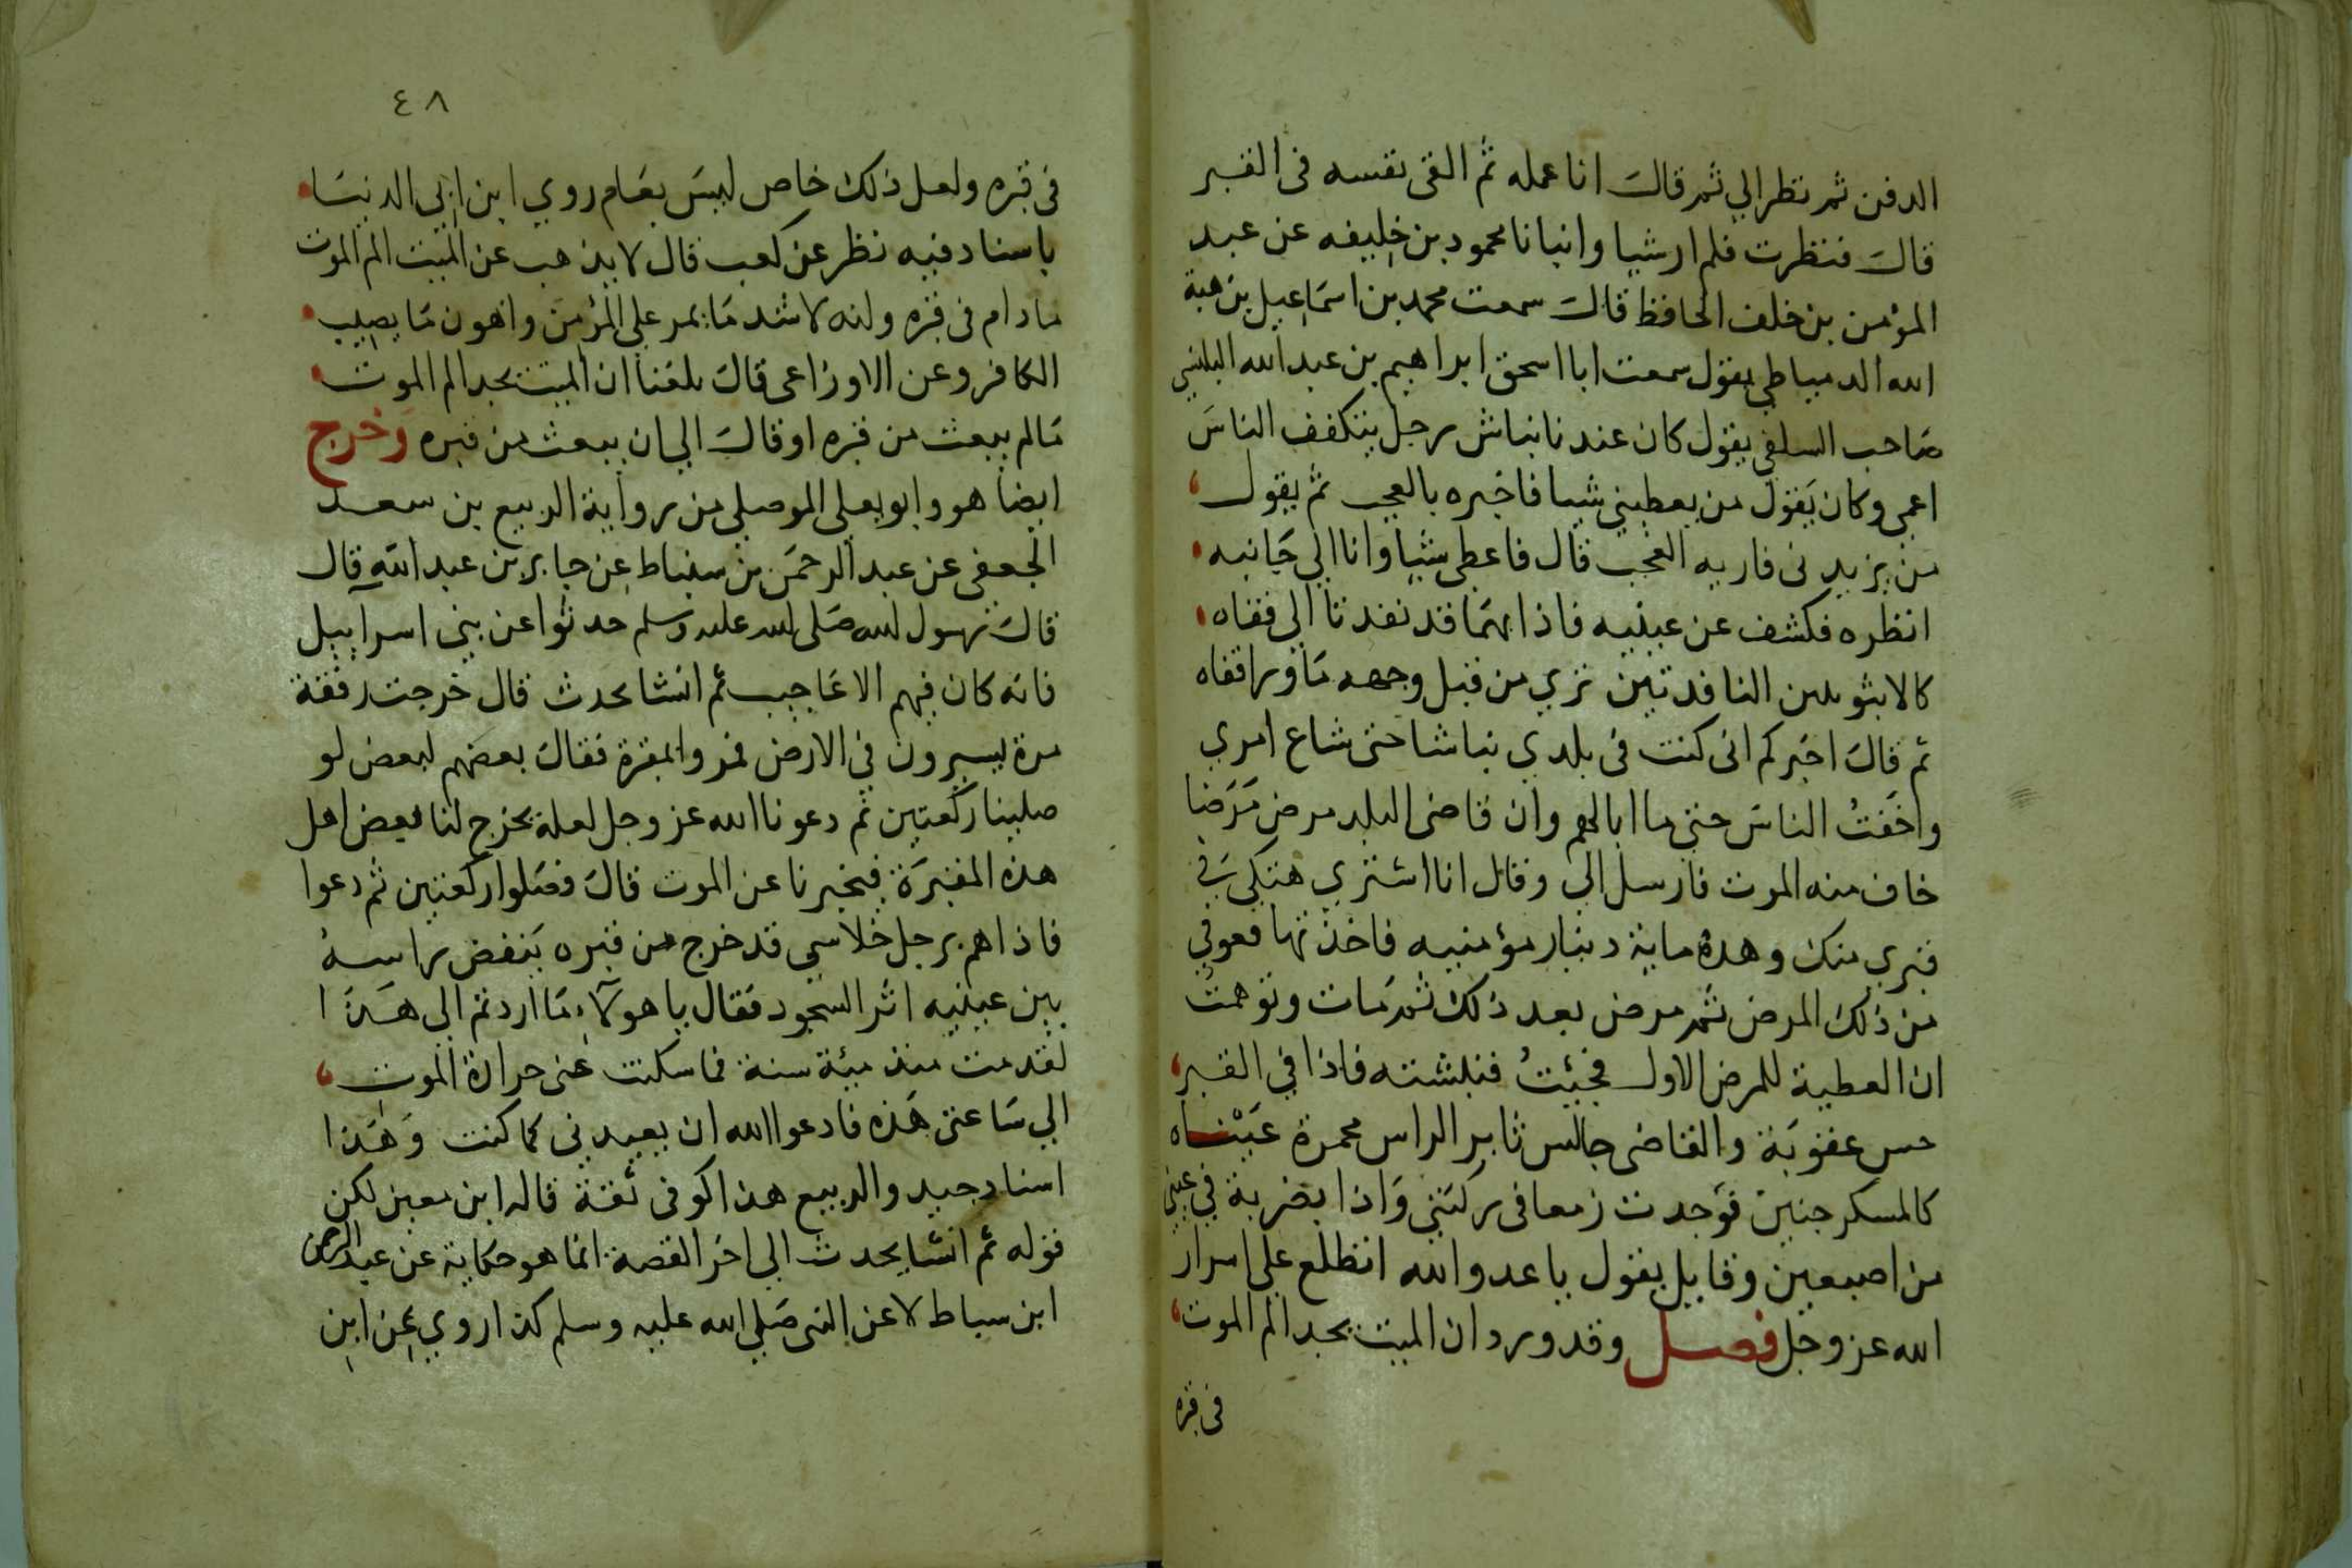 الدفن ثم نظر الي ثم قال انا عمله ثم القى نفسه فى القبر
قال فنظرت فلم ار شيا وانبانا محمود بن خليفه عن عبد
المؤمن بن خلف الحافظ قال سمعت محمد بن اسماعيل بن هبة
الله الدمياطي يقول سمعت ابا اسحق ابراهيم بن عبد الله
صاحب السلفي يقول كان عندنا نباش رجل يتكفف الناس
اعمى وكان يقول من يعطيني شيا فاخبره بالعجب ثم يقول
من يزيدنى فاريه العجب قال فاعطى شيا وانا الي جانبه
انظره فكشف عن عينيه فاذا بهما قد نفدتا الى قفاه
كالانبوبتين النافدتين تري من قبل وجهه ما ورا قفاه
ثم قال اخبركم انى كنت فى بلدي نباشا حتى شاع امري
واخفت الناس حتى ما ابالهم وان قاضى البلد مرض مرضا
خاف منه الموت فارسل الى وقال انا اشتري هتكي في
قبري منك وهذه ماية دينار مؤمنيه فاخذتها فعوفي
من ذلك المرض ثم مرض بعد ذلك ثم مات وتوهمت
ان العطية للمرض الاول فجئت فنبشته فاذا في القبر
حس عقوبة والقاضى جالس ثاير الراس محمرة عيناه
كالسكرجتين فوجدت زمعا فى ركبتي واذا بضربة في عيني
من اصبعين وقايل يقول يا عدو الله اتطلع على اسرار
الله عز وجل فصل وقد ورد ان الميت يجد الم الموت
فى قبره
٤٨
فى قبره ولعل ذلك خاص ليس بعام روي ابن ابي الدنيا
باسناد فيه نظر عن كعب قال لا يذهب عن الميت الم الموت
مادام فى قبره وانه لاشد ما يمر على المؤمن واهون ما يصيب
الكافر وعن الاوزاعى قال بلغنا ان الميت يجد الم الموت
مالم يبعث من قبره او قال الي ان يبعث من قبره وخرج
ايضا هو وابو يعلي الموصلي من رواية الربيع بن سعد
الجعفى عن عبد الرحمن بن سنباط عن جابر بن عبد الله قال
قال رسول الله صلى الله عليه وسلم حدثوا عن بني اسراييل
فانه كان فيهم الاعاجيب ثم انشا يحدث قال خرجت رفقة
مرة يسيرون في الارض فمروا بمقبرة فقال بعضهم لبعض لو
صلينا ركعتين ثم دعونا الله عز وجل لعله يخرج لنا بعض اهل
هذه المقبرة فيخبرنا عن الموت قال فصلوا ركعتين ثم دعوا
فاذا هم برجل خلاسي قد خرج من قبره ينفض راسه
بين عينيه اثر السجود فقال يا هولاء ما اردتم الى هذا
لقد مت منذ ميئة سنة فما سكنت عنى حرارة الموت
الي ساعتى هذه فادعوا الله ان يعيدني كما كنت وهذا
اسناد جيد والربيع هذا كوفى ثقة قاله ابن معين لكن
قوله ثم انشا يحدث الى اخر القصة انما هو حكاية عن عبد الرحمن
ابن سباط لا عن النبى صلي الله عليه وسلم كذا روي عن ابن